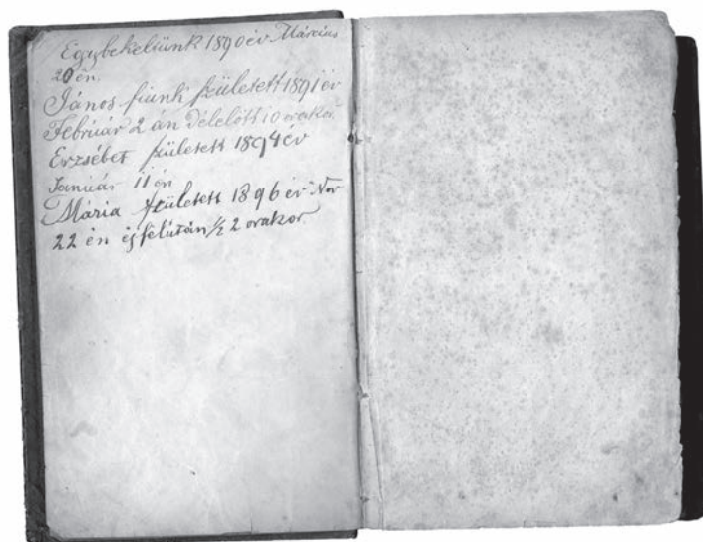 Egybekeltünk 1890 év Március
20 én.
János fiunk született 1891 év
Február 2 án délelőtt 10 orakor
Erzsébet született 1894 év
Január 11 én
Mária született 1896 év Nov
22 én éjfélután ½ 2 orakor